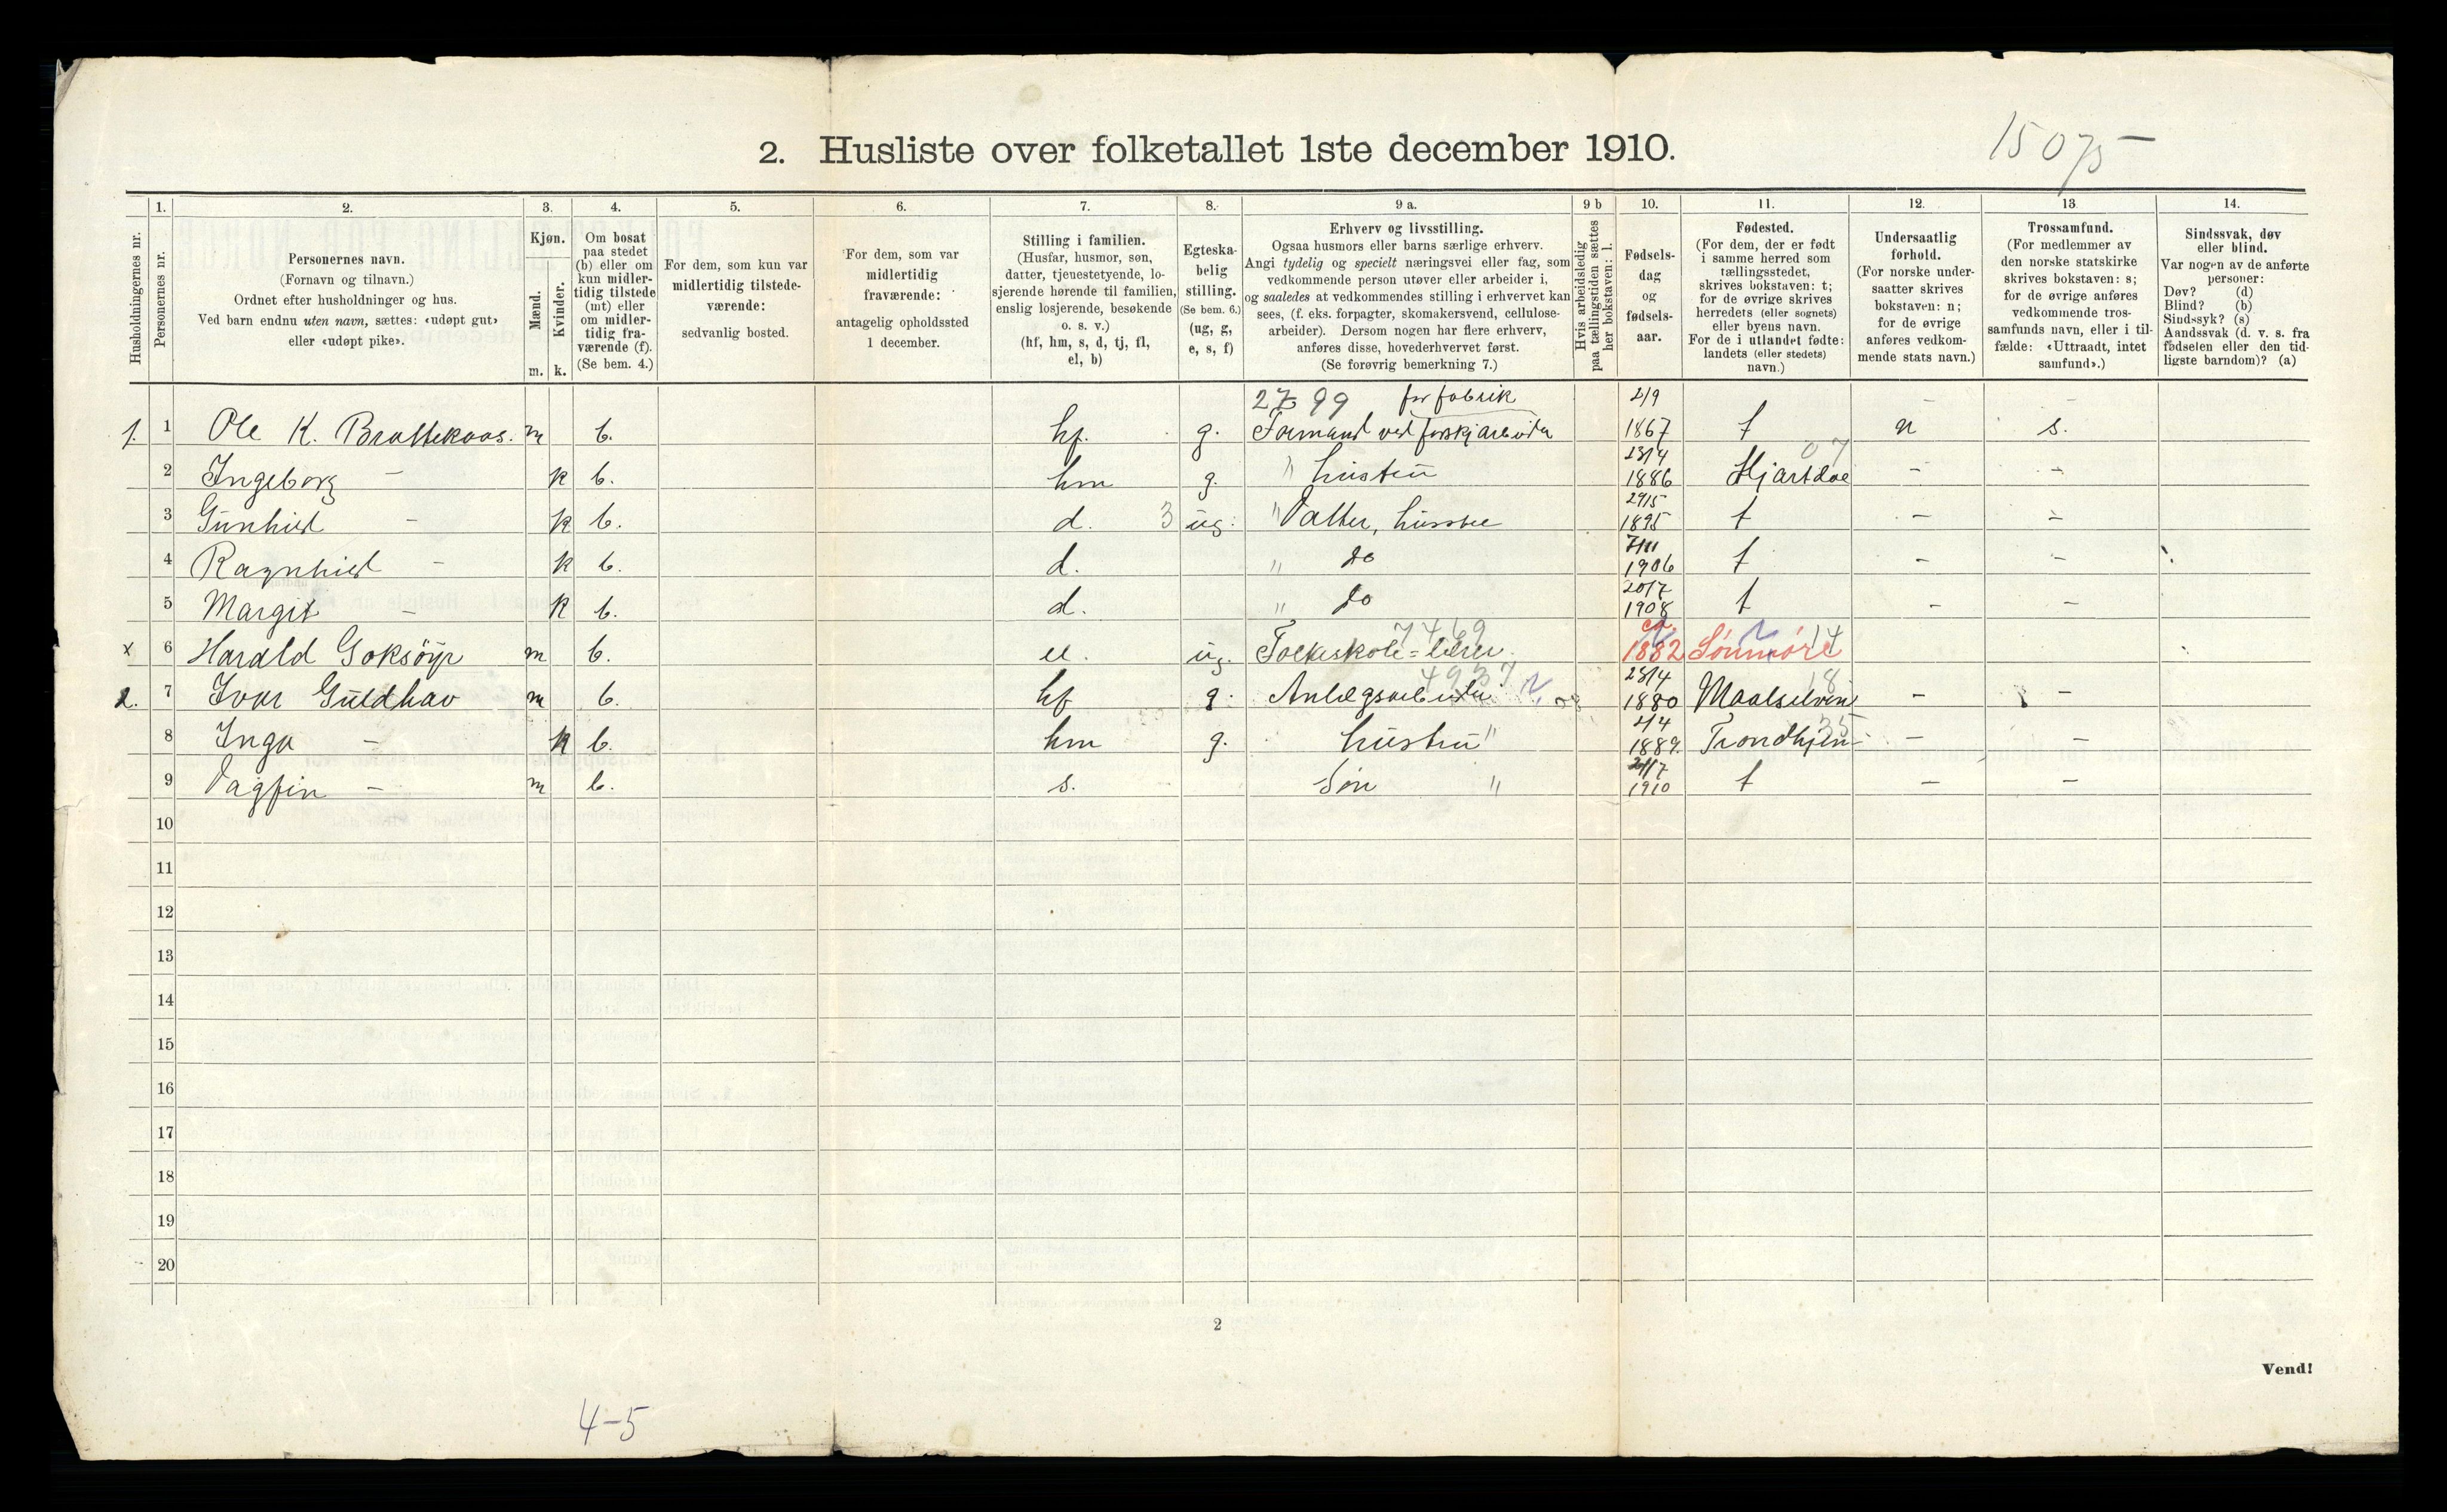 15075
2. Husliste over folketallet 1ste december 1910.
1. 2. 3. 4. 5. 6. 7. 8. 9 a. 9 b 10. 11. 12. 13 14.
Husholdningernes nr.
Personernes nr.
Personernes navn.
(Fornavn og tilnavn.)
Ordnet efter husholdninger og hus.
Ved barn endnu uten navn, sættes: «udøpt gut»
eller «udøpt pike».
Kjøn.
Mænd.
Kvinder.
m. k.
Om bosat
paa stedet
(b) eller om
kun midler-
tidig tilstede
(mt) eller
om midler-
tidig fra-
værende (f).
(Se bem. 4.)
For dem, som kun var
midlertidig tilstede-
værende:
sedvanlig bosted.
For dem, som var
midlertidig
fraværende:
antagelig opholdssted
1 december.
Stilling i familien.
(Husfar, husmor, søn,
datter, tjenestetyende, lo-
sjerende hørende til familien,
enslig losjerende, besøkende
o. s. v.)
(hf, hm, s, d, tj, fl,
el, b)
Egteska-
belig
stilling.
(Se bem. 6.)
(ug, g,
e, s, f)
Erhverv og livsstilling.
Ogsaa husmors eller barns særlige erhverv.
Angi tydelig og specielt næringsvei eller fag, som
vedkommende person utøver eller arbeider i,
og saaledes at vedkommendes stilling i erhvervet kan
sees, (f. eks. forpagter, skomakersvend, cellulose-
arbeider). Dersom nogen har flere erhverv,
anføres disse, hovederhvervet først.
(Se forøvrig bemerkning 7.)
Hvis arbeidsledig
paa tællingstiden sættes
her bokstaven: l.
Fødsels-
dag
og
fødsels-
aar.
Fødested.
(For dem, der er født
i samme herred som
tællingsstedet,
skrives bokstaven: t;
for de øvrige skrives
herredets (eller sognets)
eller byens navn.
For de i utlandet fødte:
landets (eller stedets)
navn.)
Undersaatlig
forhold.
(For norske under-
saatter skrives
bokstaven: n;
for de øvrige
anføres vedkom-
mende stats navn.)
Trossamfund.
(For medlemmer av
den norske statskirke
skrives bokstaven: s;
for de øvrige anføres
vedkommende tros-
samfunds navn, eller i til-
fælde: «Uttraadt, intet
samfund».)
Sindssvak, døv
eller blind.
Var nogen av de anførte
personer:
Døv? (d)
Blind? (b)
Sindssyk? (s)
Aandssvak (d. v. s. fra
fødselen eller den tid-
ligste barndom)? (a)
2799 for fabrik 2/9
1. 1 Ole K. Brattekaas. m b. hf. g. Formand ved 1867 t n s.
07
23/4
2 Ingeborg - k b. hm g. " hustru 1886 Hjartdal - -
29/5
3 Gunhild - k b. d. 3 ug. " Datter, husstel 1895 t - -
7/11
4 Ragnhild - k b. d. " do 1906 t - -
20/7
5 Margit - k b. d. " do 1908 t - -
7469 ca. 14
x 6 Harald Goksöyr m b. el. ug. Folkeskole=lærer. 1882 Sönmöre
4937 23/4 18
2. 7 Ivar Guldhav m b. hf g. Anlægsarbeider 1880 Maalselven - -
2/4 35
8 Inga - k b. hm g. hustru " 1889. Trondhjem - -
9 Dagfin - m b. s. Søn " 1910 t - -
10
11
12
13
14
15
16
17
18
19
20
2
Vend!
4-5